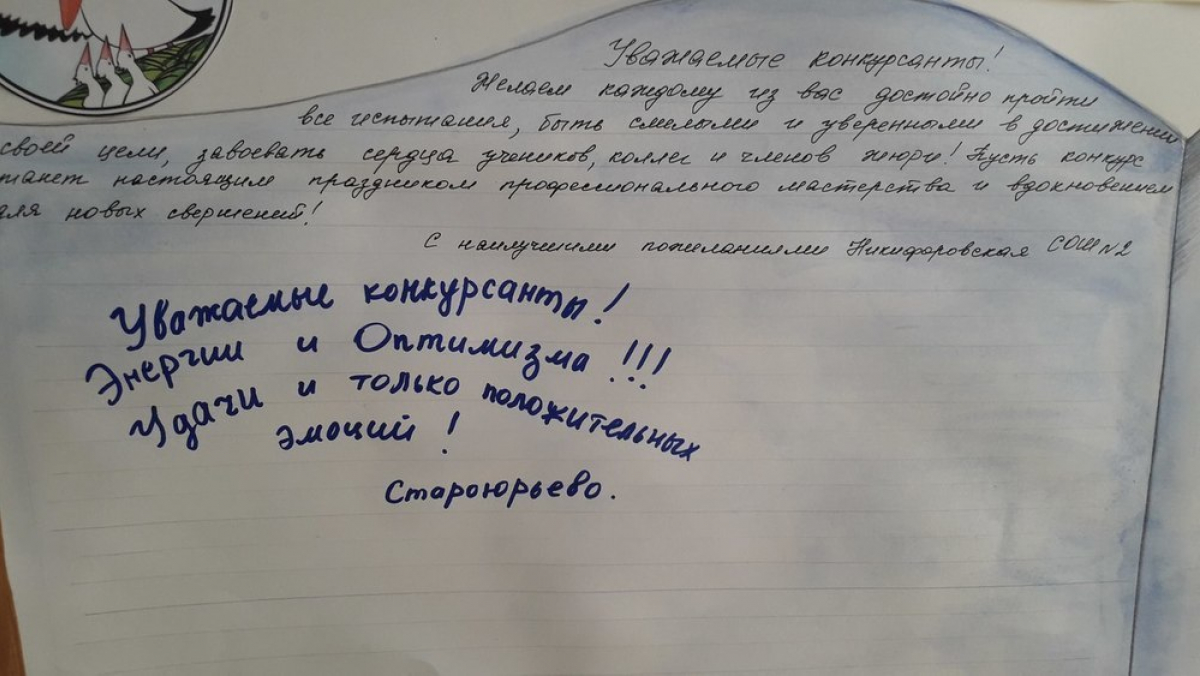 Уважаемые конкурсанты!
Желаем каждому из вас достойно пройти
все испытания, быть смелыми и уверенными в достижении
своей цели, завоевать сердца учеников, коллег и членов жюри! Пусть конкурс
танет настоящим праздником профессионального мастерства и вдохновением
для новых свершений!
С наилучшими пожеланиями Никифоровская СОШ №2
Уважаемые конкурсанты!
Энергии и Оптимизма !!!
Удачи и только положительных
эмоций!
Староюрьево.